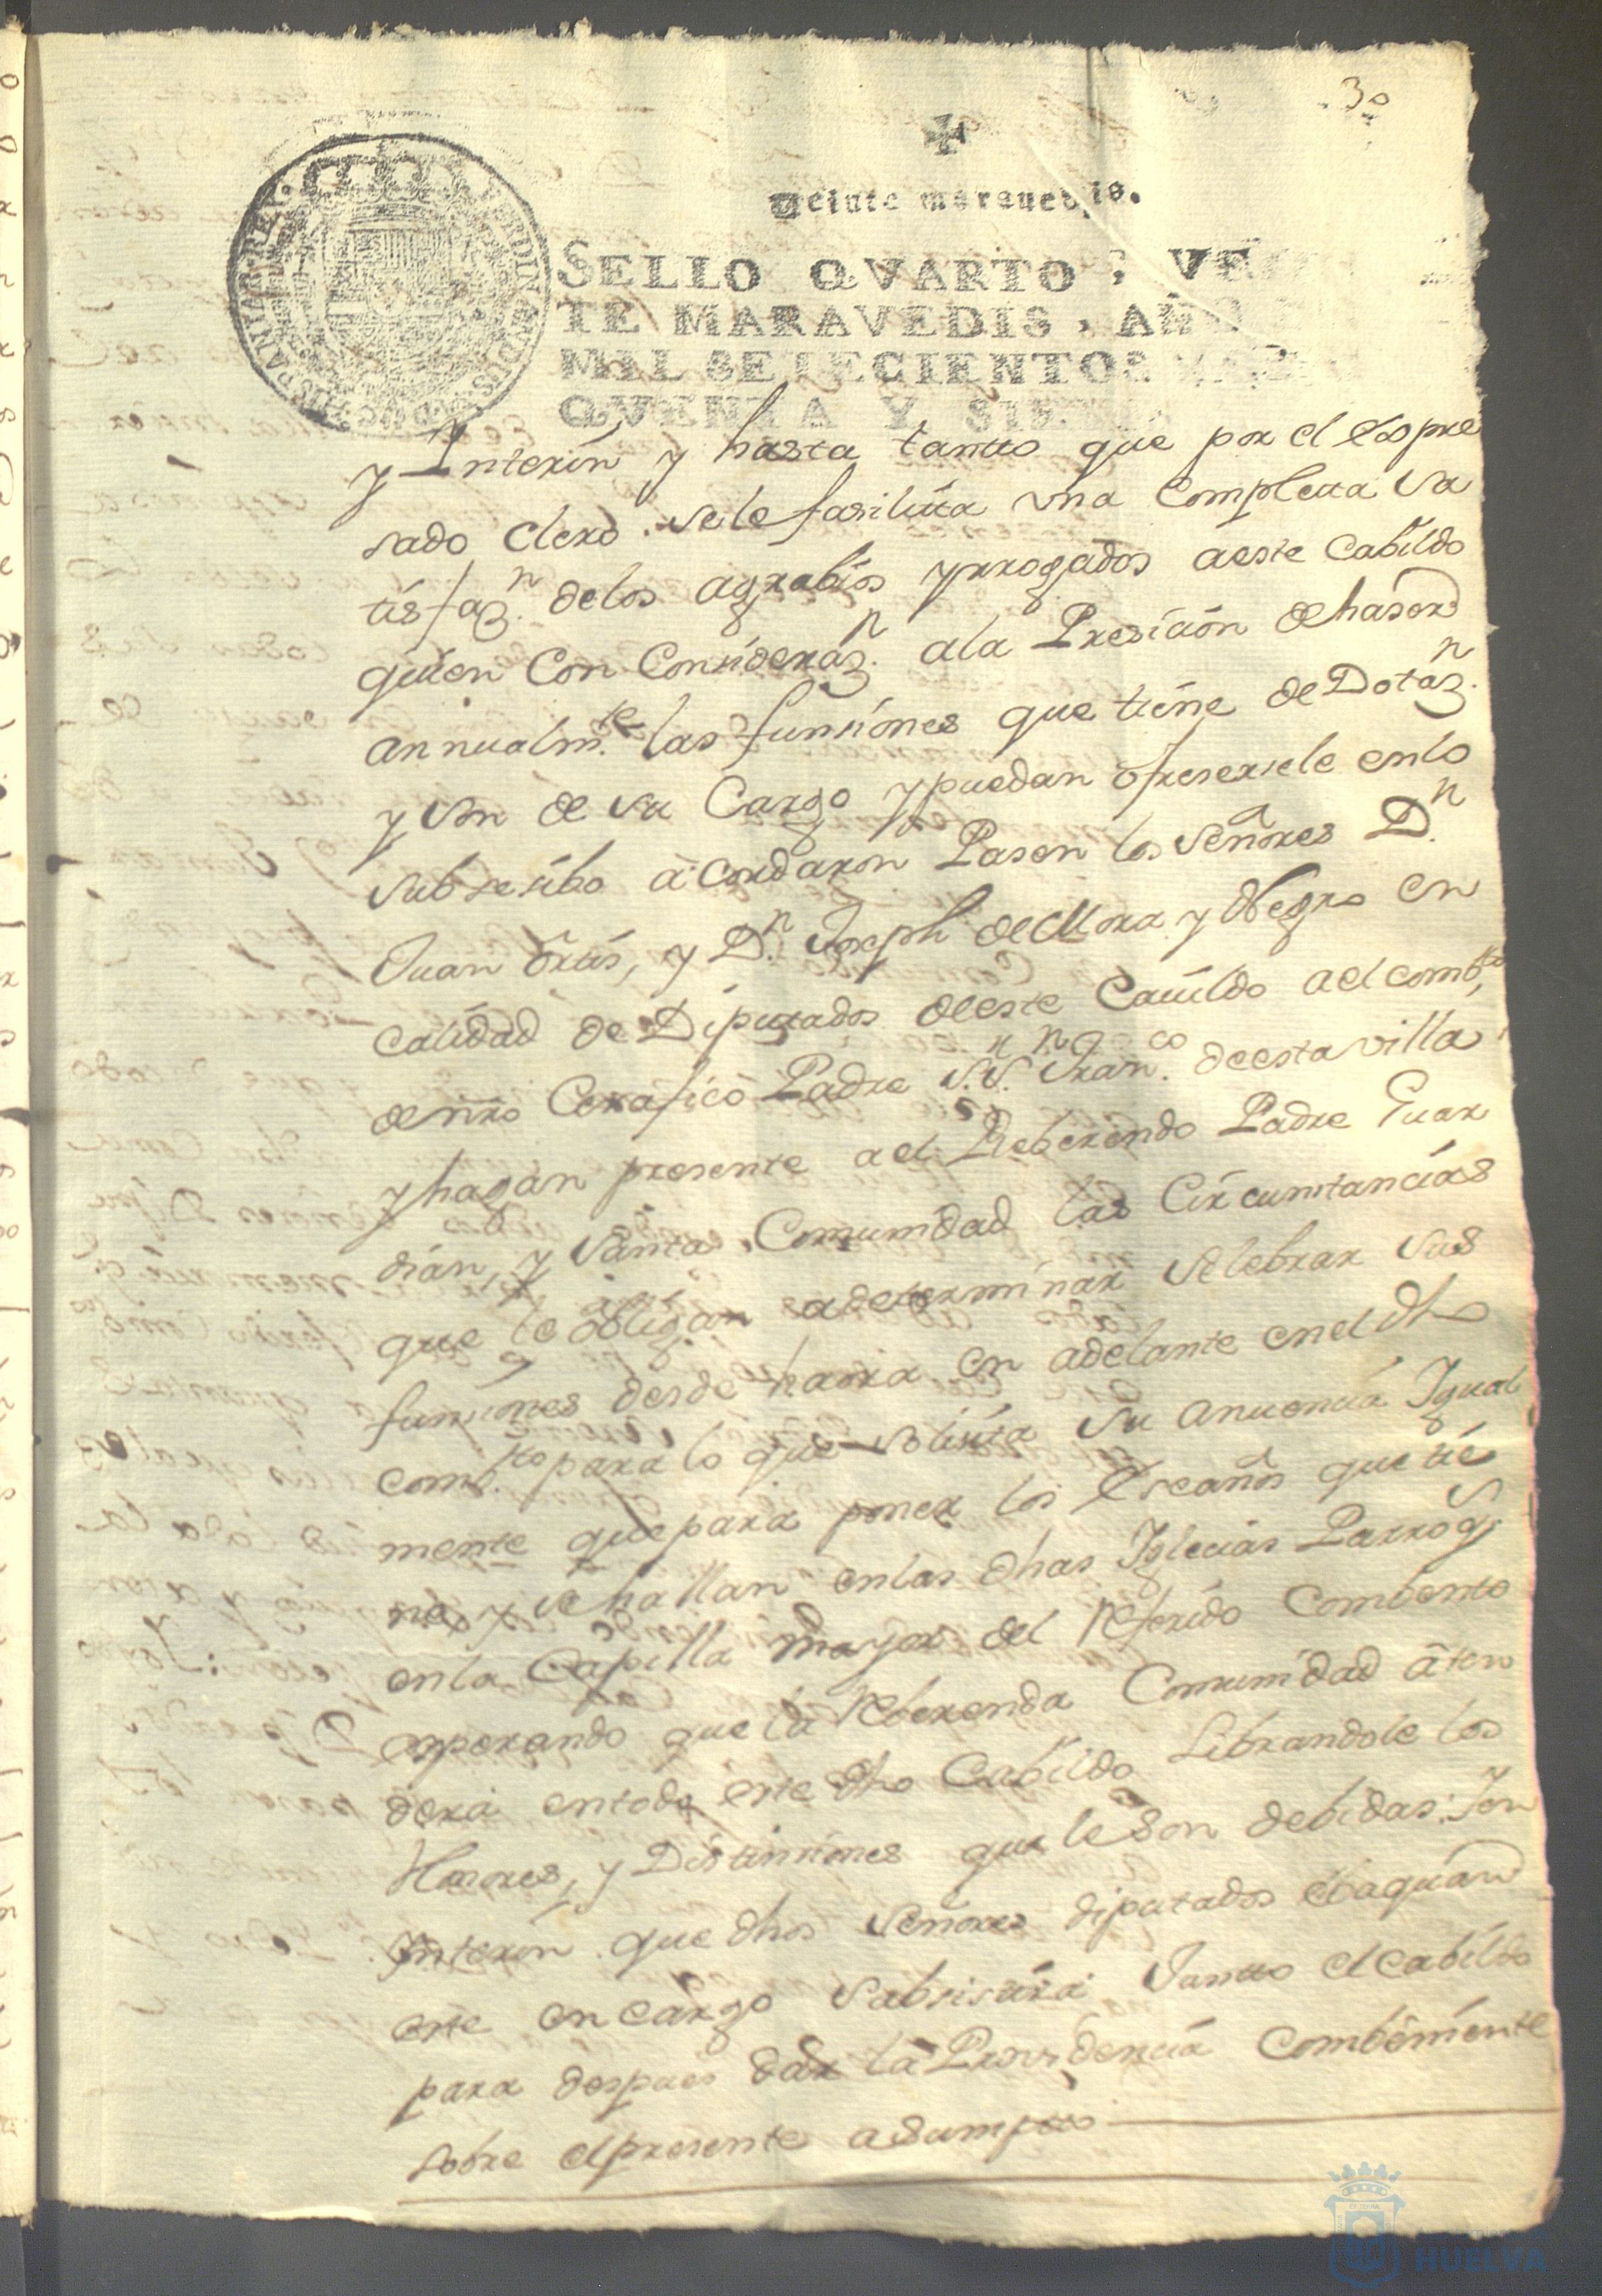 30
Veinte maravedis.
SELLO QVARTO, VE
TE MARAVEDIS, AÑO
MIL SETECIENTOS
QVENTA Y SIE
y Interin y hasta tantto que por el Espre
sado Clero se le fasilitta una Completta Sa
tisfaz.n de los agrabios yrrogados a este Cabildo
quien Con Consideraz.n a la Presicion de haser
annualm.te las funsiones que tiene de Dotaz.n
y son de su Cargo y puedan ofresersele en lo
subsesibo acordaron Pasen los Señores D.n
Juan Ortis, y D.n Joseph de Mora y Negro en
calidad de Diputados de este Cauildo a el comb.to
de nro Cerafico Padre S.n Fran.co de esta villa
y hagan presente a el Reberendo Padre Guar
dian, y Santa Comunidad las Circunstancias
que le obligan a determinar selebrar sus
funsiones desde haora en adelante en el dho
comb.to para lo que solisita su anuencia Igual
mente que para poner los Escaños que tie
ne, y se hallan en las dhas Iglecias Parroq.s
en la Capilla mayor del referido Combento
esperando que la reberenda Comunidad aten
dera en todo este dho Cabildo Librandole los
Honores, y Distinsiones que le son debidas: Y en
Interin que dhos Señores diputados ebaquan
este encargo subsistira Juntto el Cabildo
para despues dar la Providencia Combeniente
sobre el presente asumptto
HUELVA